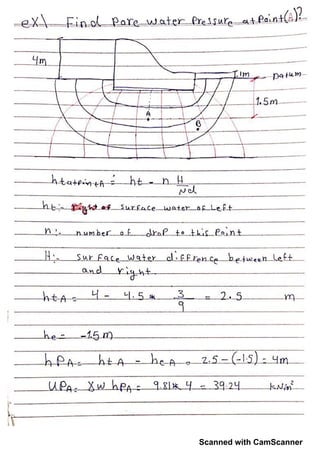 ex\ Find Pore water Pressure at Point(A)?
4m
1m Datum
1.5m
A
B
ht at Point A = ht - n H/Nd
ht :- surface water of Left
n :- number of drop to this Point
H :- Surface water difference between Left
and right.
htA = 4 - 4.5 * 3/9 = 2.5 m
he = -1.5m
hPA = htA - heA = 2.5 - (-1.5) = 4m
UPA = γw hPA = 9.81 * 4 = 39.24 kN/m²
Scanned with CamScanner